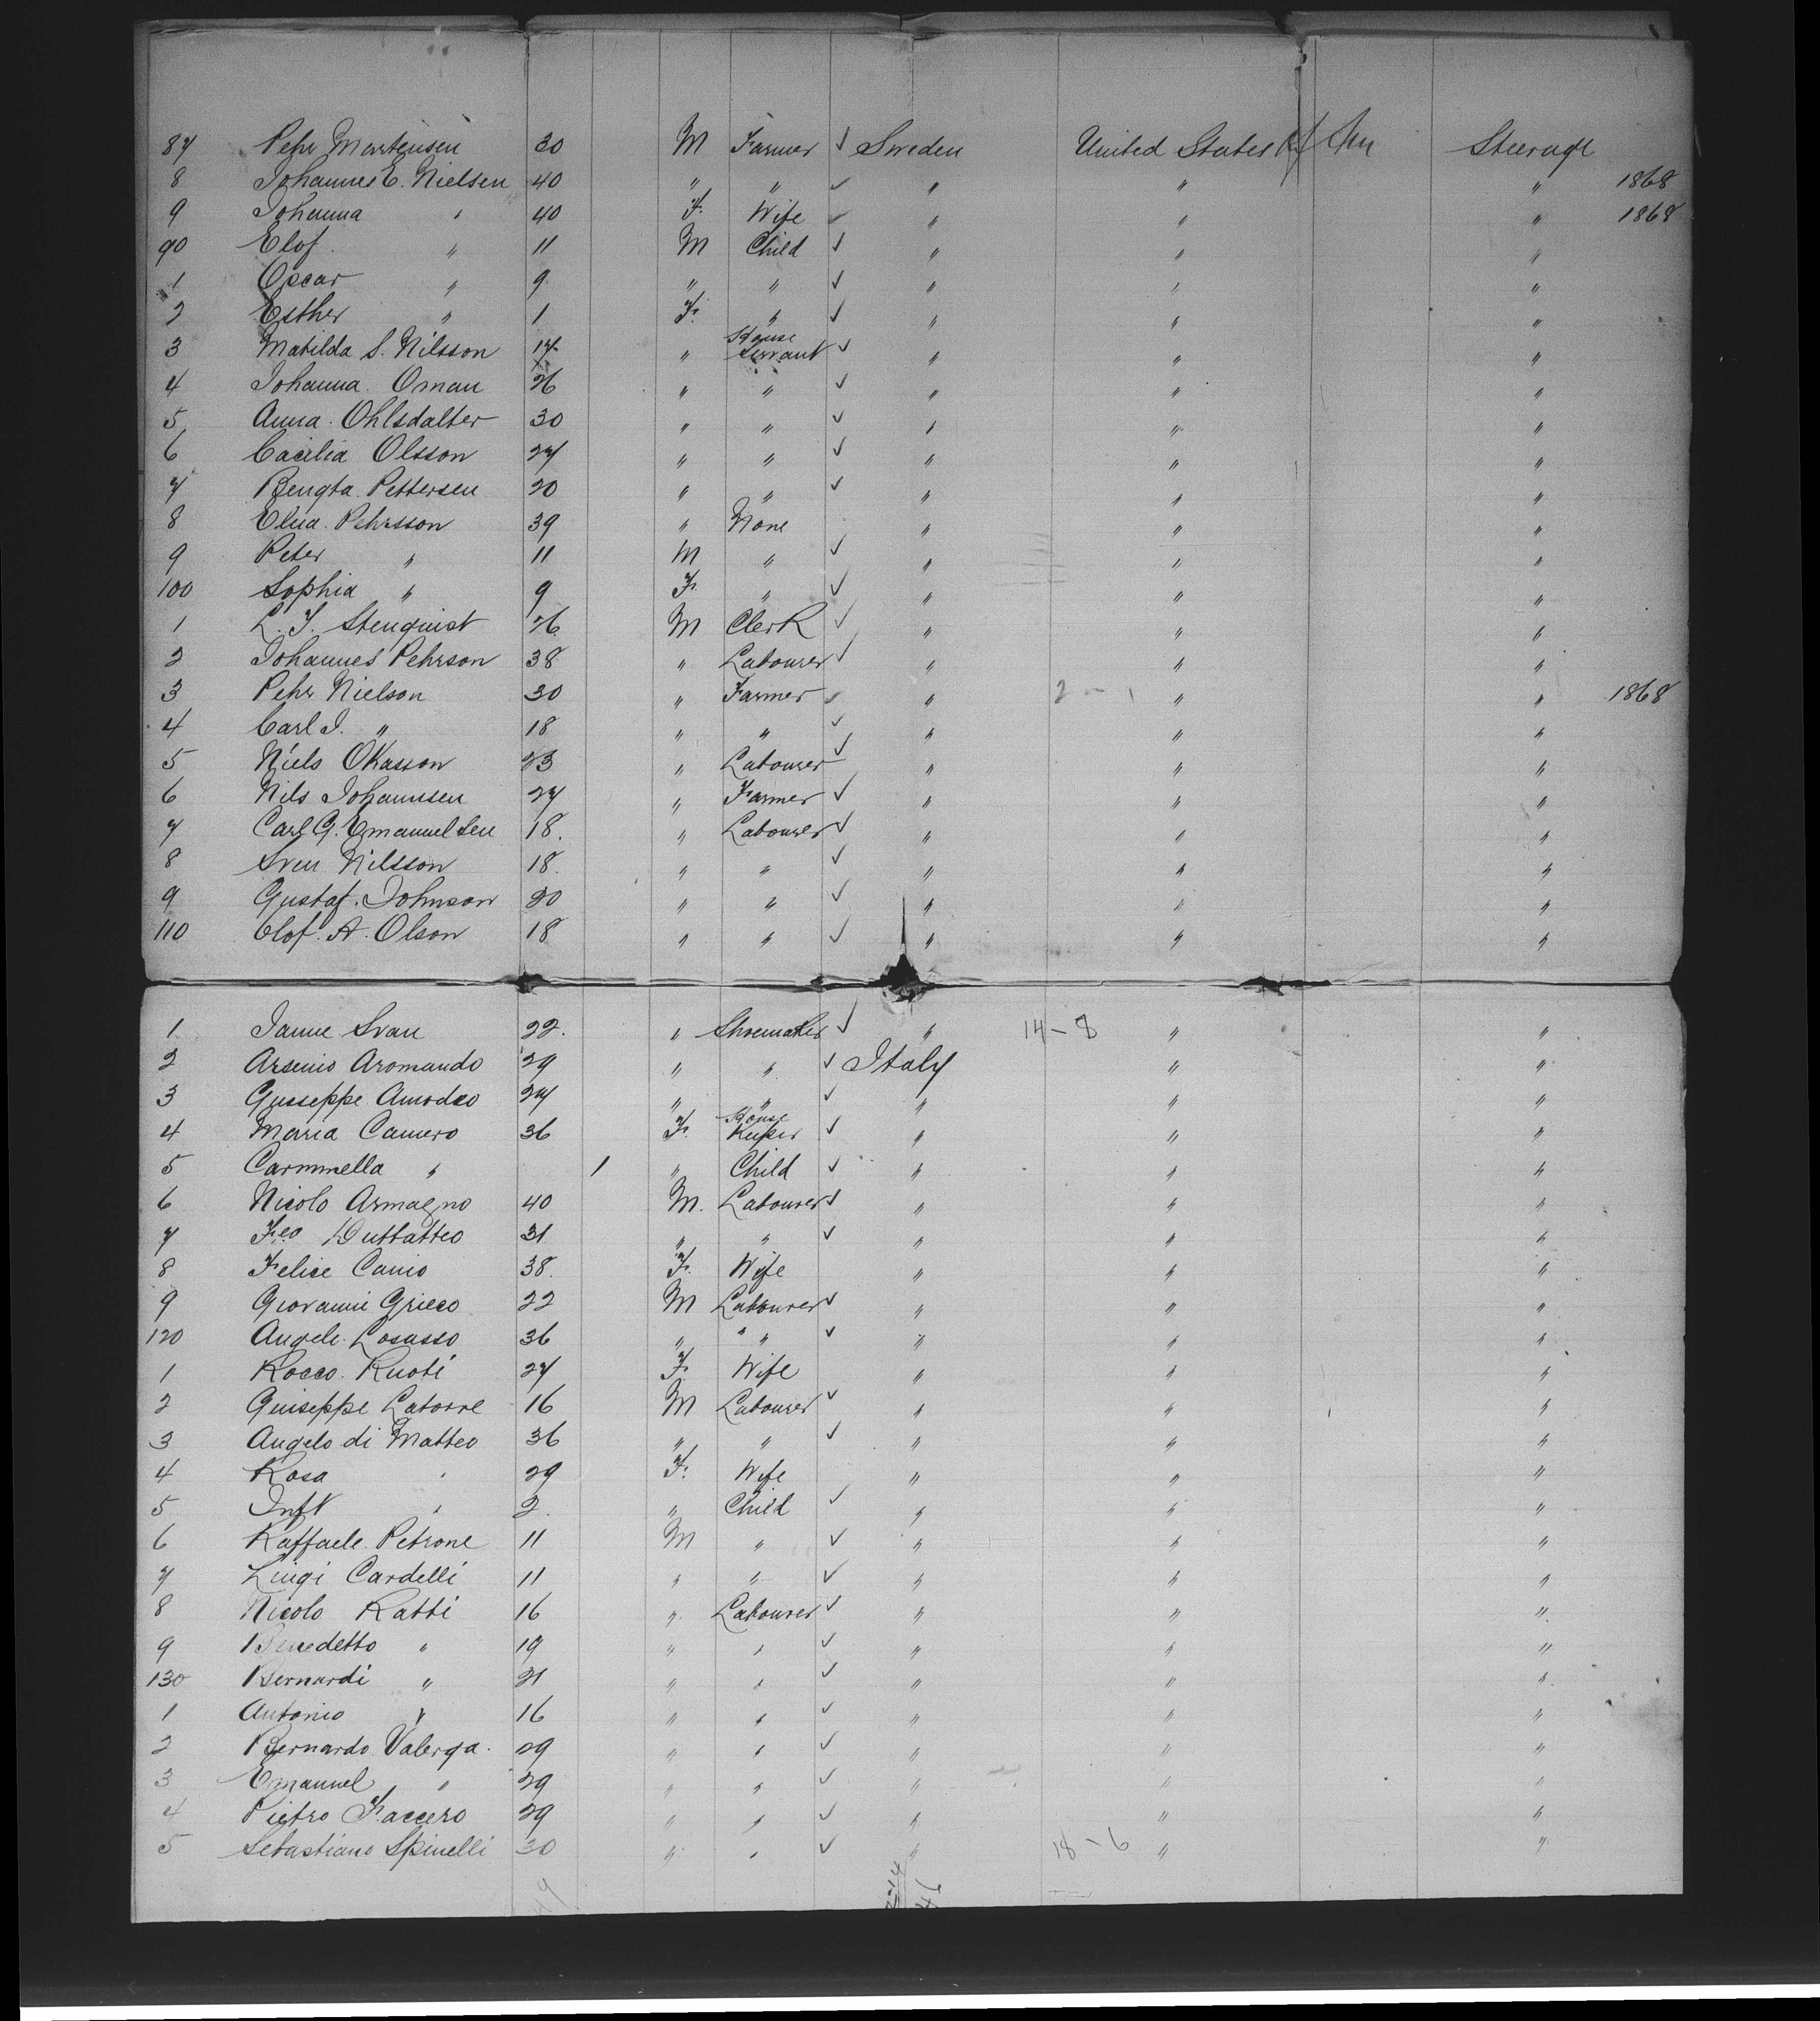 87 Pehr Martensen 30 M Farmer ✓ Sweden United States of Am Steerage
8 Johannes E. Nielsen 40 " " ✓ " " " 1868
9 Johanna " 40 F. Wife ✓ " " " 1868
90 Elof " 11 M Child ✓ " " "
1 Oscar " 9 " " ✓ " " "
2 Esther " 1 F. " ✓ " " "
3 Matilda S. Nilsson 17 " House Servant ✓ " " "
4 Johanna Oman 26 " " ✓ " " "
5 Anna Ohlsdatter 30 " " ✓ " " "
6 Cacilia Olsson 27 " " ✓ " " "
7 Bengta Pettersen 20 " " ✓ " " "
8 Elna Pehrsson 39 " None " " "
9 Peter " 11 M " ✓ " " "
100 Sophia " 9 F. " ✓ " " "
1 L. F. Stenquist 26 M Clerk ✓ " " "
2 Johannes Pehrson 38 " Labourer ✓ " " "
3 Pehr Nielson 30 " Farmer ✓ " 2 - 1 " " 1868
4 Carl J. " 18 " " ✓ " " "
5 Niels Okasson 23 " Labourer ✓ " " "
6 Nils Johannsen 27 " Farmer ✓ " " "
7 Carl G. Emanuelsen 18. " Labourer ✓ " " "
8 Sven Nilsson 18. " " ✓ " " "
9 Gustaf Johnson 20 " " ✓ " " "
110 Olof A. Olson 18 " " ✓ " " "
1 Janne Svan 22. " Shoemaker ✓ " 14 - 8 " "
2 Arsenio Aromando 29 " " ✓ Italy " "
3 Guiseppe Amodeo 24 " " ✓ " " "
4 Maria Camero 36 F. House Keeper ✓ " " "
5 Carmmella " 1 " Child ✓ " " "
6 Nicolo Armagno 40 M. Labourer ✓ " " "
7 Feo 31 " " ✓ " " "
8 Felice Canio 38. F. Wife " " "
9 Giovanni Grieco 22 M Labourer ✓ " " "
120 Angele Losasso 36 " " " ✓ " " "
1 Rocco Ruoti 27 F. Wife " " "
2 Guiseppe Latorre 16 M Labourer ✓ " " "
3 Angelo di Matteo 36 " " ✓ " " "
4 Rosa " 29 F. Wife " " "
5 Inft " 2. " Child ✓ " " "
6 Raffaele Petrone 11 M " ✓ " " "
7 Luigi Cardelli 11 " " ✓ " " "
8 Nicolo Ratti 16 " Labourer ✓ " " "
9 Benedetto " 19 " " ✓ " " "
130 Bernardi " 21 " " ✓ " " "
1 Antonio " 16 " " ✓ " " "
2 Bernardo Valerga 29 " " ✓ " " "
3 Emanuel " 29 " " ✓ " " "
4 Pietro Faccero 29 " " ✓ " " "
5 Sebastiano Spinelli 30 " " ✓ " 18 - 6 " "